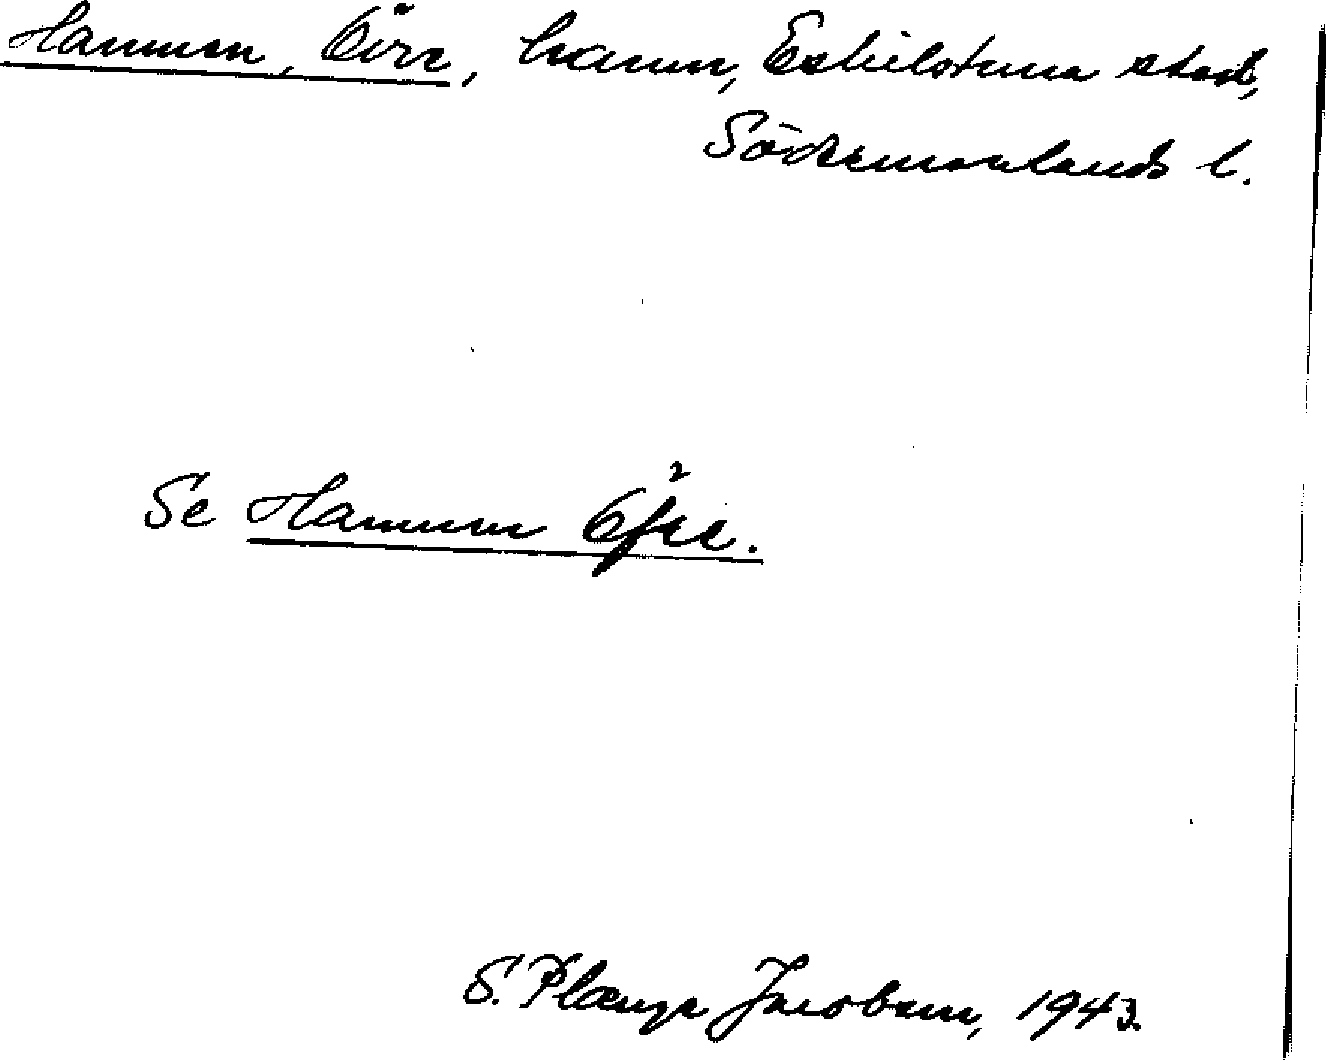 Hammon, Övre, hamn, Eskilstuna stad,
Södermanlands l.
Se Hammon Öfre.
S. Plænge Jacobson, 1943.